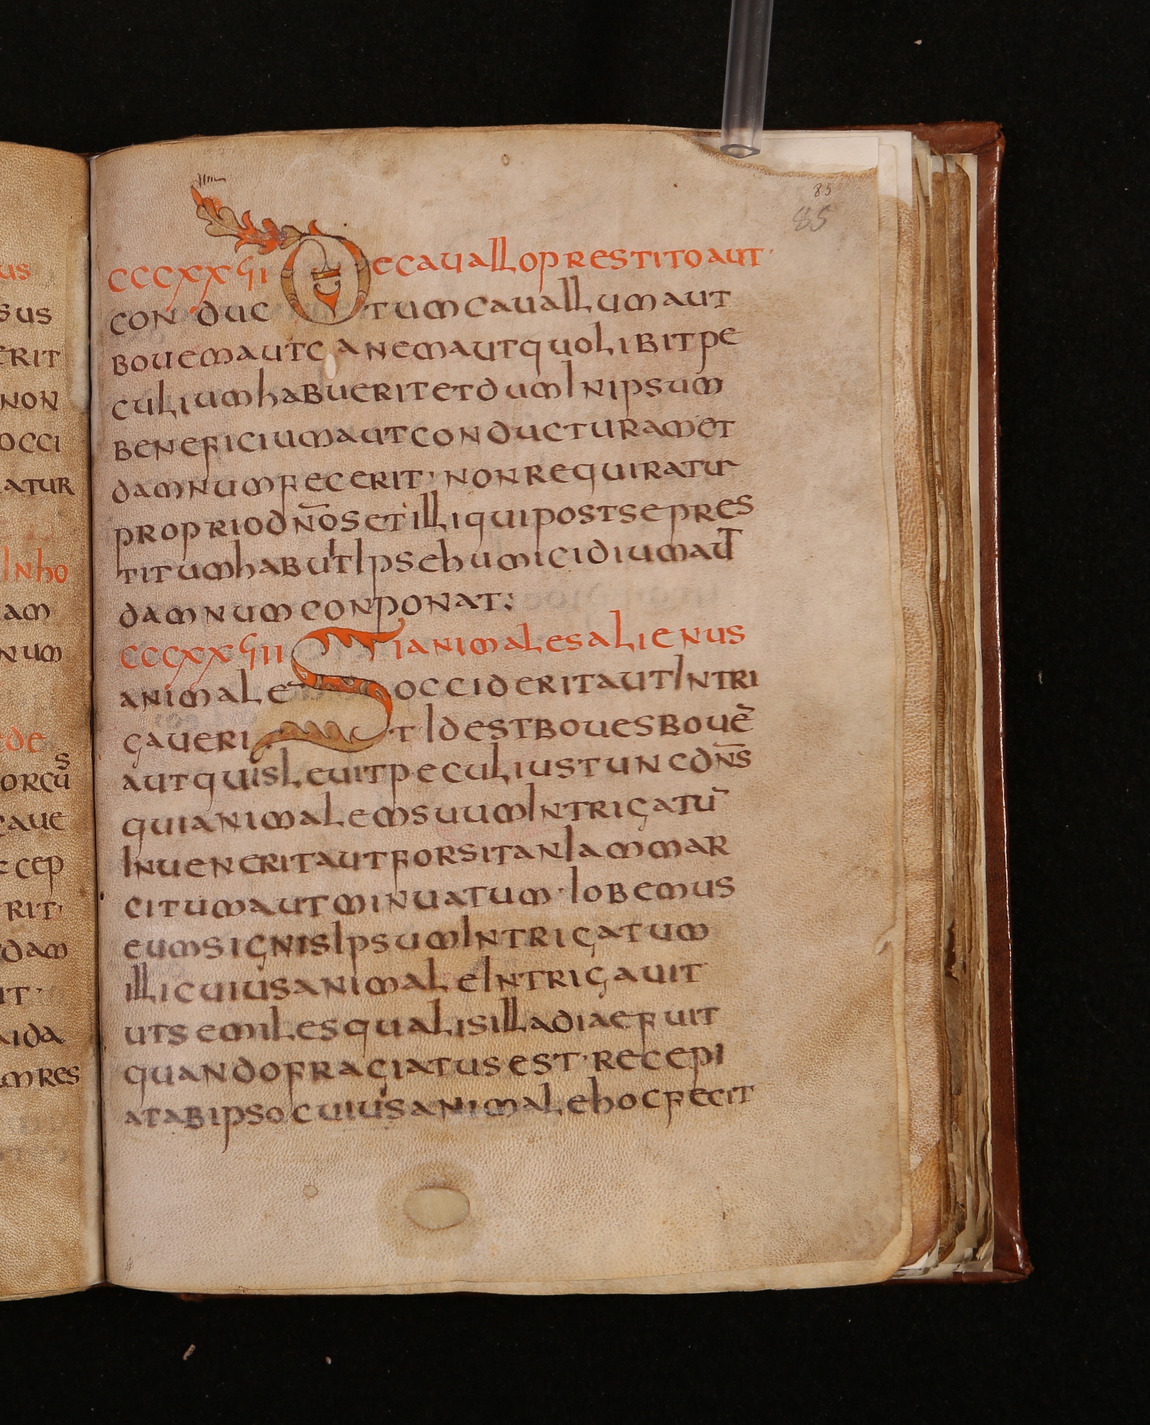 us
sus
erit
non
occi
atur
Inho
am
num
ede
orcu
s
caue
ccep
rit
dam
it
aida
mres
85
85
CCCXXϛII De cauallo prestito aut
conductum cauallum aut
bouem aut canem aut quolibit pe
culium habuerit et dum In ipsum
beneficium aut conducturam et
damnum fecerit · non requiratur
proprio dn̄os et illi qui postse pres
titum habuit Ipse humicidium aut
damnum conponat :
CCCXXϛIII Si animales alienus
animale occiderit aut Intri
gauerit Idest boues bouē
aut quisleuit peculiust unc dn̄s
qui animalem suum Intrigatū
Inuenerit aut forsitan Iam mar
citum aut minuatum · Iobemus
eum signis Ipsum Intrigatum
illi cuius animale Intrigauit
ut semiles qualis illa diae fuit
quando fragiatus est · recepi
at ab ipso cuius animale hoc fecit